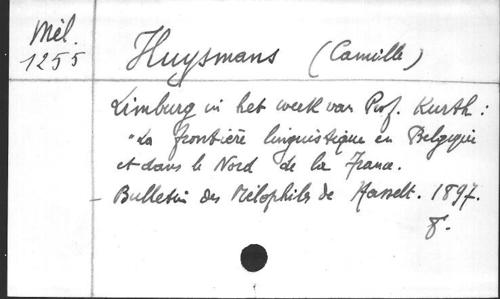 Mél.
1255
Huysmans (Camille)
Limburg in het werk van Prof. Kurth :
"La frontière linguistique en Belgique
et dans le Nord de la France.
- Bulletin des Mélophiles de Hasselt. 1897.
8°.